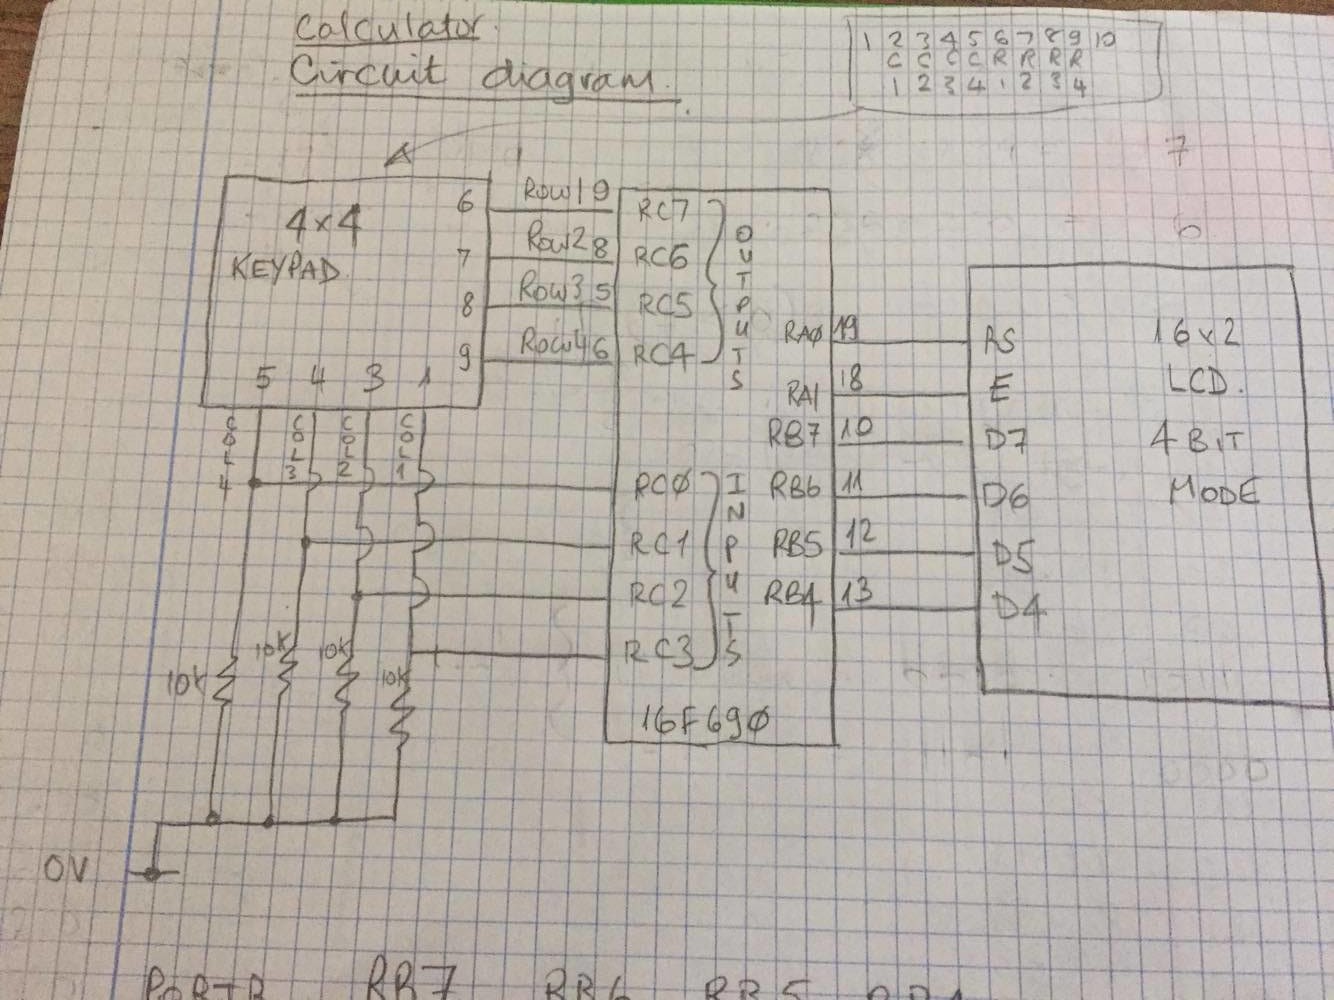 Calculator.
Circuit diagram.
1 2 3 4 5 6 7 8 9 10
C C C C R R R R
1 2 3 4 1 2 3 4
7
6
4x4
KEYPAD.
6
7
8
9
5 4 3 1
Row1 9
Row2 8
Row3 5
Row4 6
COL4
COL3
COL2
COL1
RC7
RC6
RC5
RC4
OUTPUTS
RC0
RC1
RC2
RC3
INPUTS
16F690
RA0 19
RA1 18
RB7 10
RB6 11
RB5 12
RB4 13
RS
E
D7
D6
D5
D4
16x2
LCD.
4 BIT
MODE
10K
10K
10K
10K
0V
PORTB RB7 RB6 RB5